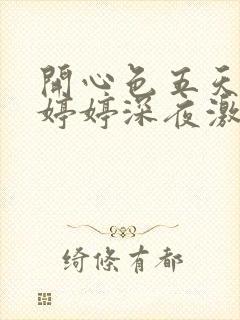 開心色五天
婷婷深夜激
绮條有都